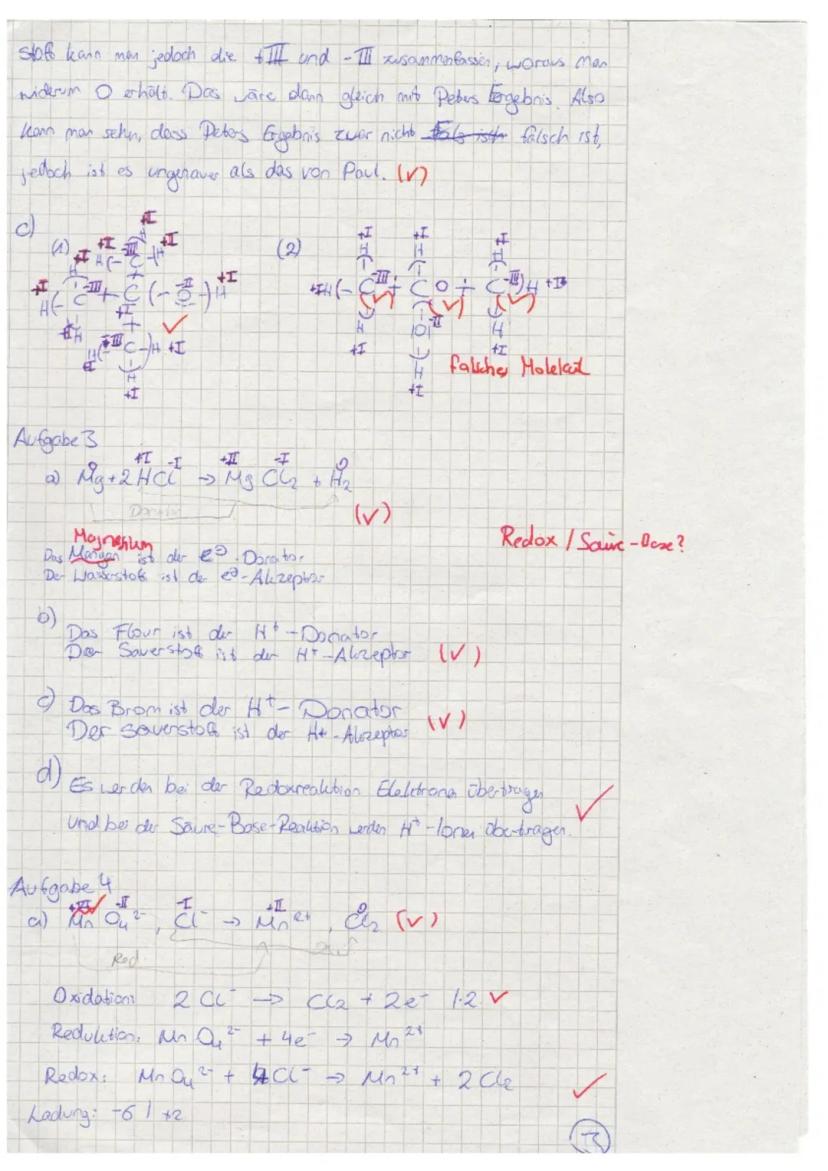 stoff kann man jedoch die +III und -III zusammenfassen, woraus man
widerum 0 erhält. Das wäre dann gleich mit Peters Ergebnis. Also
kann man sehn, dass Peters Ergebnis zwar nicht falsch ist,
jedoch ist es ungenauer als das von Paul. (✓)
c)
(1)
(2)
falsches Molekül
Aufgabe 3
a) Mg + 2 HCl → MgCl₂ + H₂
0 +I -I +II -I 0
Donator
(✓)
Magnesium
Redox / Säure-Base?
Das Mangan ist der e⊖-Donator
Der Wasserstoff ist der e⊖-Akzeptor
b) Das Flour ist der H⁺-Donator
Der Sauerstoff ist der H⁺-Akzeptor (✓)
c) Das Brom ist der H⁺-Donator
Der Sauerstoff ist der H⁺-Akzeptor (✓)
d) Es werden bei der Redoxreaktion Elektronen übertragen
und bei der Säure-Base-Reaktion werden H⁺-Ionen übertragen. ✓
Aufgabe 4
+VI -II -I +II 0
a) MnO₄²⁻, Cl⁻ → Mn²⁺, Cl₂ (✓)
Red
Oxidation: 2 Cl⁻ → Cl₂ + 2e⁻ |·2 ✓
Reduktion: MnO₄²⁻ + 4e⁻ → Mn²⁺
Redox: MnO₄²⁻ + 4Cl⁻ → Mn²⁺ + 2 Cl₂ ✓
Ladung: -6 | +2